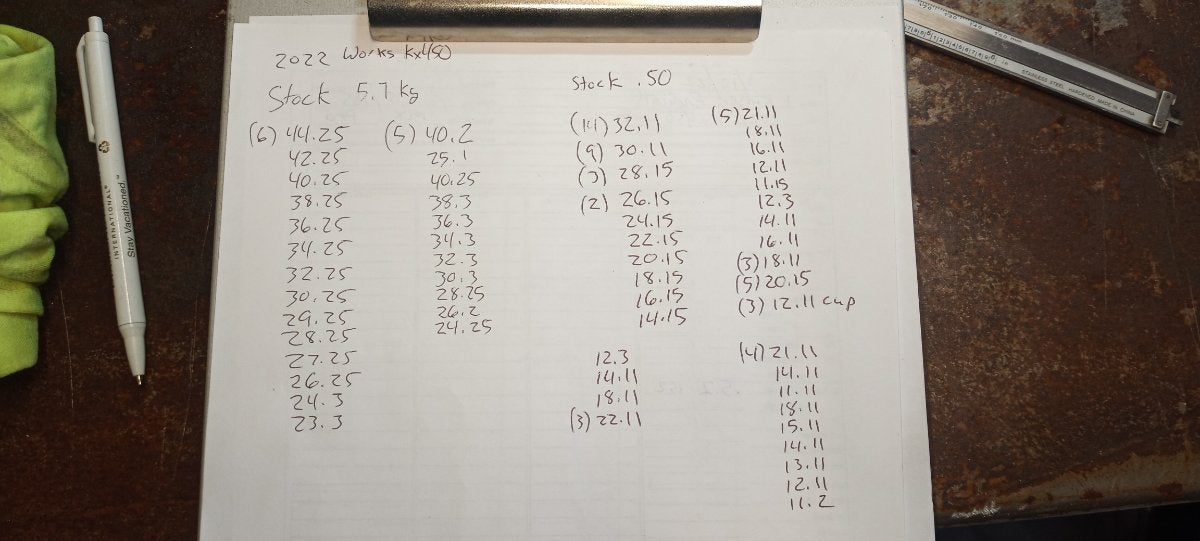 2022 Works Kx450
Stock 5.7 kg
(6) 44.25
42.25
40.25
38.25
36.25
34.25
32.25
30.25
29.25
28.25
27.25
26.25
24.3
23.3
(5) 40.2
25.1
40.25
38.3
36.3
34.3
32.3
30.3
28.25
26.2
24.25
Stock .50
(14) 32.11
(9) 30.11
28.15
(2) 26.15
24.15
22.15
20.15
18.15
16.15
14.15
12.3
14.11
18.11
(3) 22.11
(5) 21.11
18.11
16.11
12.11
11.15
12.3
14.11
16.11
(3) 18.11
(5) 20.15
(3) 12.11 cup
(4) 21.11
14.11
11.11
18.11
15.11
14.11
13.11
12.11
11.2
INTERNATIONAL®
Stay Vacationed.™
STAINLESS STEEL HARDENED MADE IN CHINA